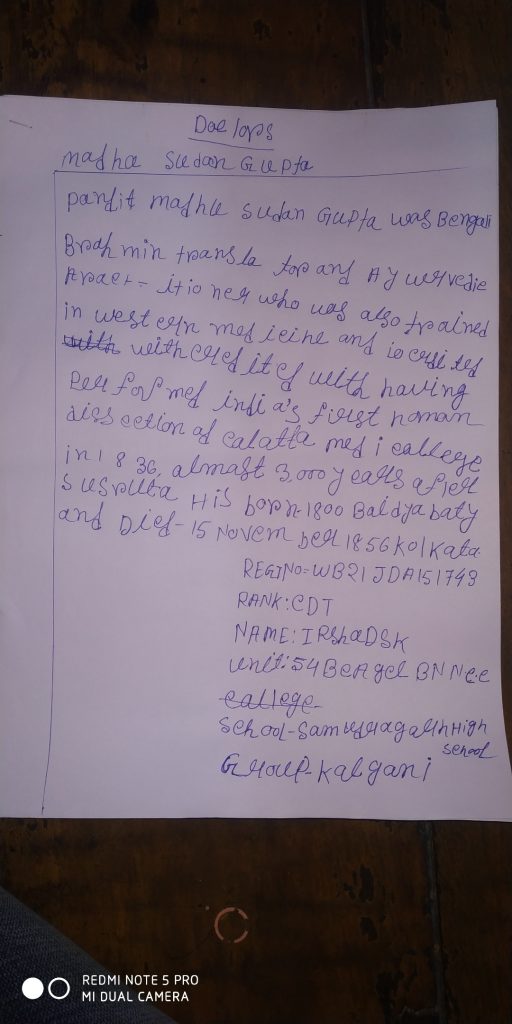 Doctors
Madhu Sudan Gupta
Pandit Madhu Sudan Gupta was Bengali
Brahmin transla tor and Ayurvedic
Pract - itioner who was also trained
in western medicine and is credited
with credited with having
Performed india's first human
dissection at calatta medi callege
in 1836, almost 3,000 years after
Susruta His born-1800 Baidyabaty
and Died-15 November 1856 Kolkata
REGTNO=WB21JDA151743
RANK:CDT
NAME:IRShaDSK
unit:54 BeAgel BN Ncc
callege
School-Samudragarh High
School
Group-Kalyani
REDMI NOTE 5 PRO
MI DUAL CAMERA